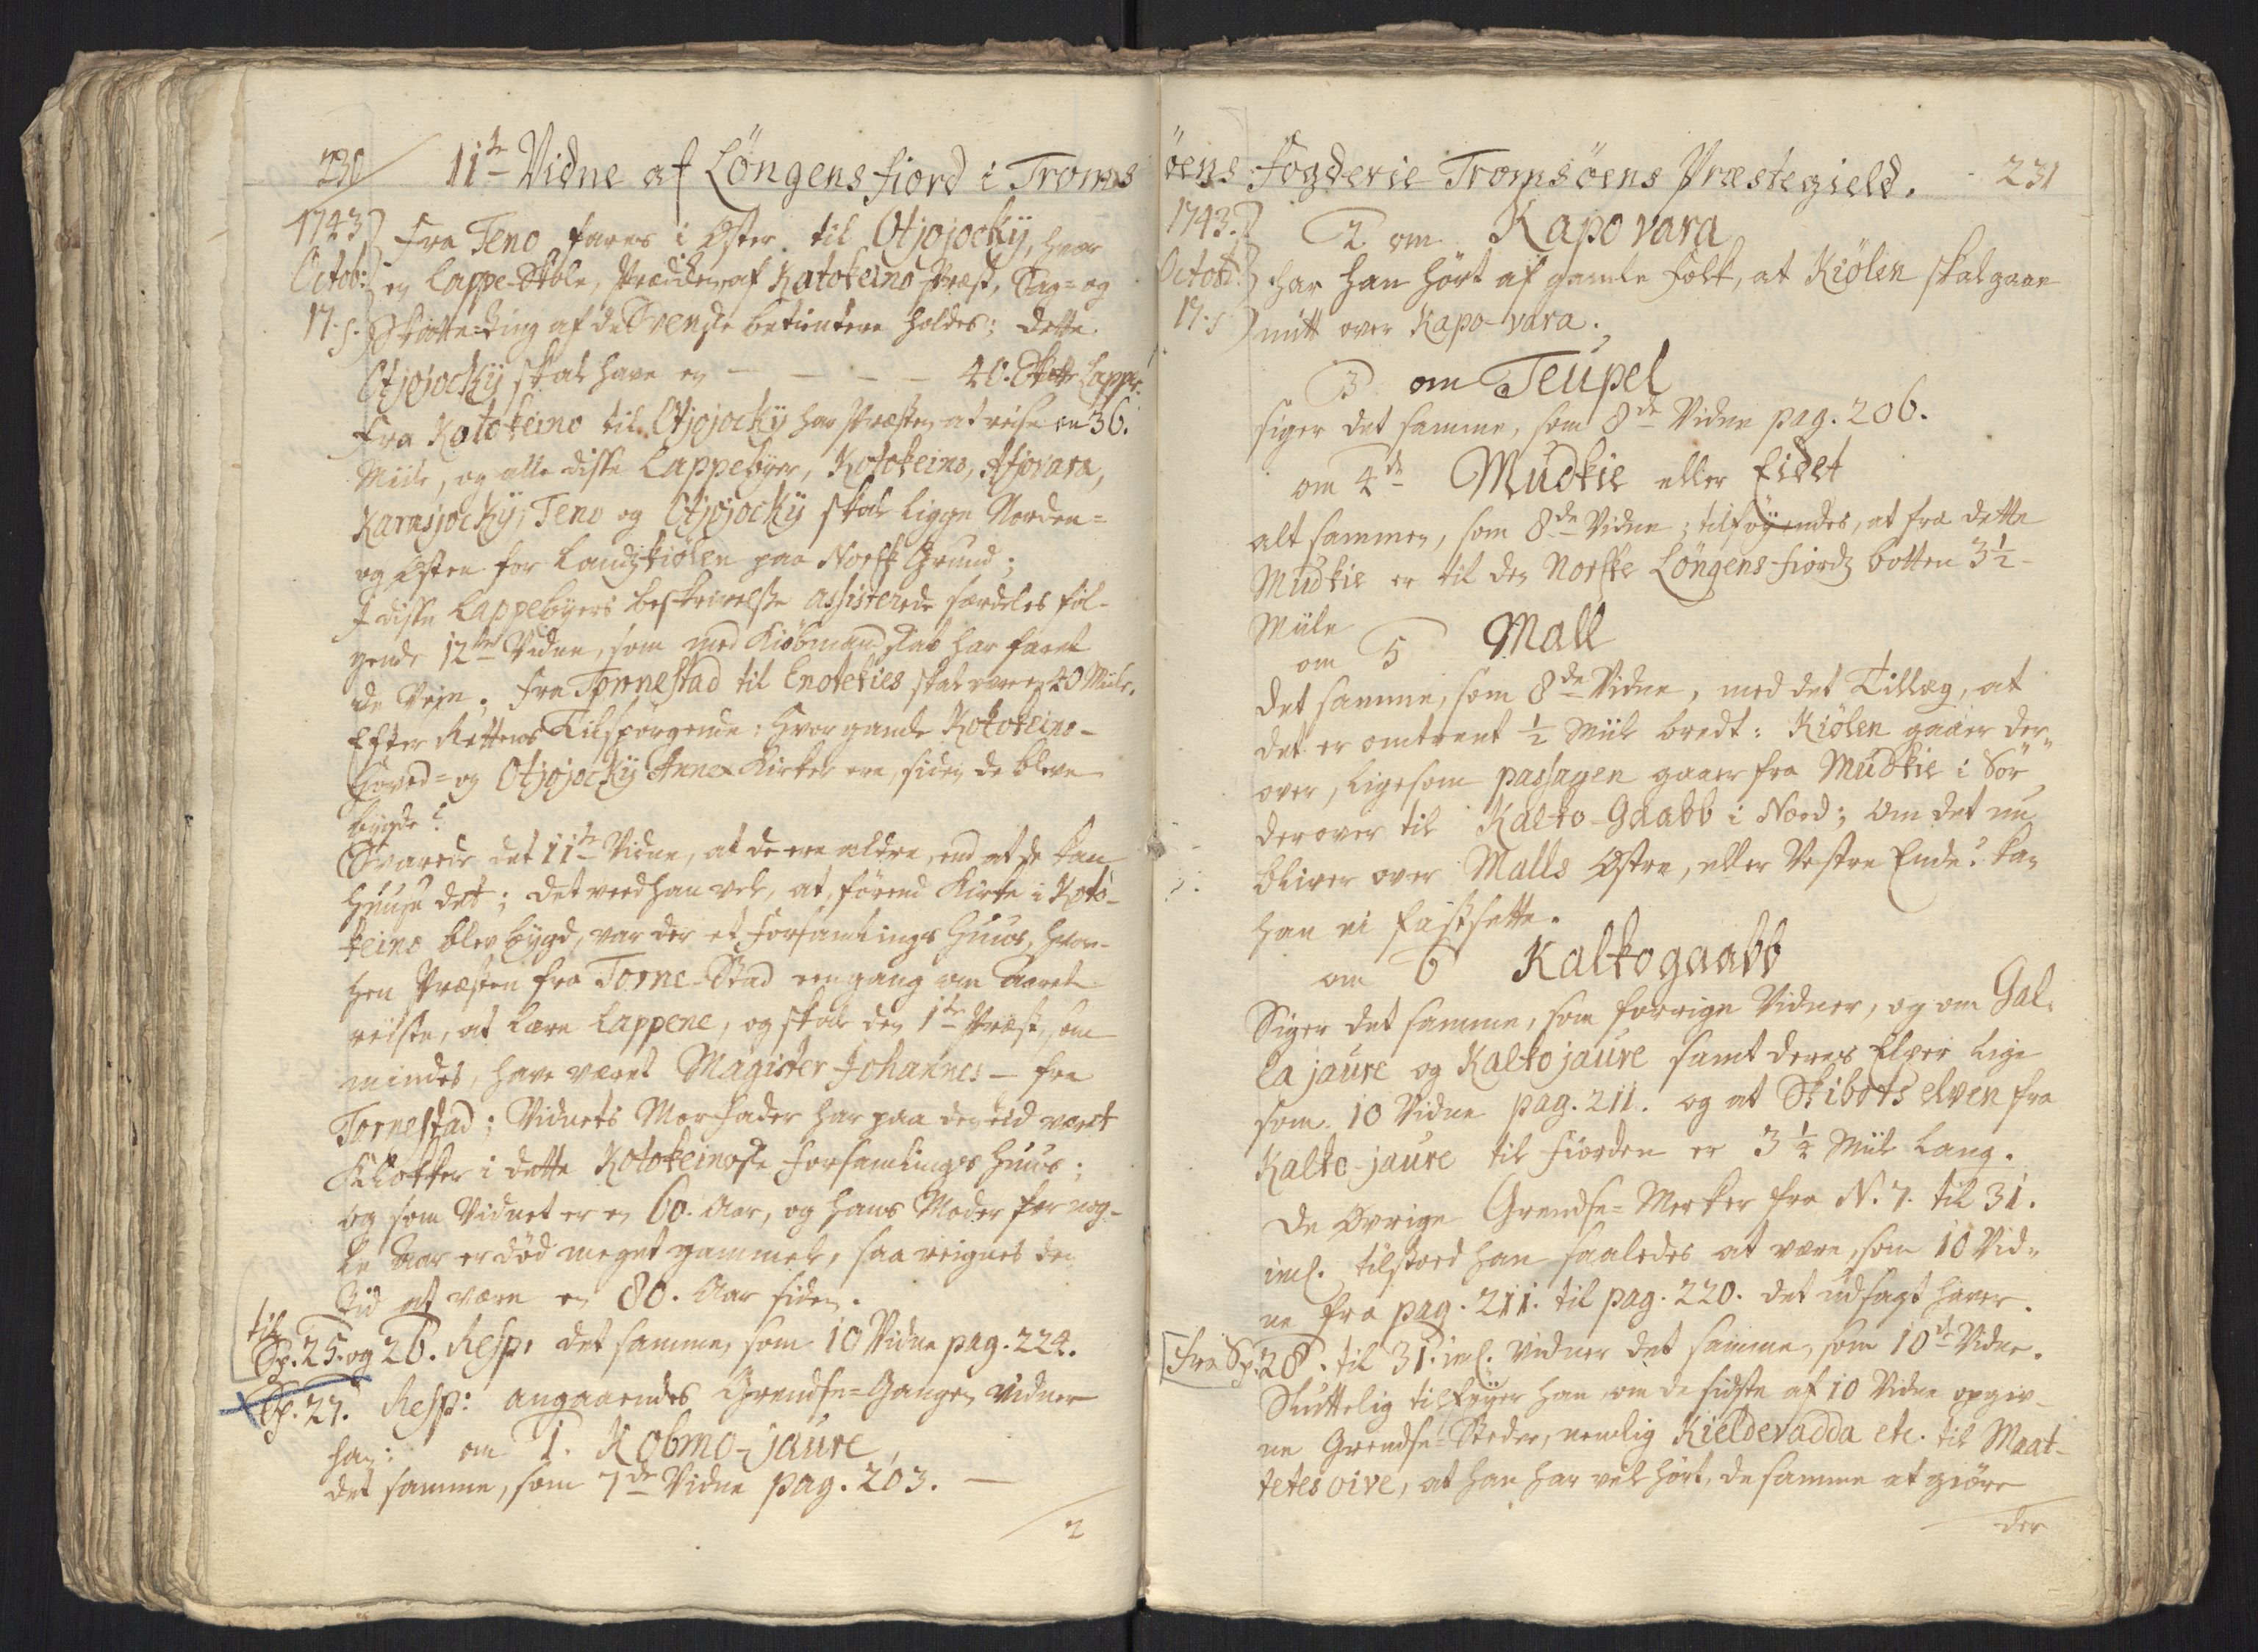 230 11te Vidne af Löngensfiord i Troms
1743 Octob: 17. s.
Fra Teno fares i Öster til Otjojocky, hvor
en Lappe-Skole, Prædiken af Kotokeino Præst, Sag- og
Skatte-Ting af de Svenske betientere holdes; dette
Otjojocky skal have en — — — — 40. Skatte Lapper.
Fra Kotokeino til Otjojocky har Præsten at reise en 36.
Miile, og alle disse Lappebyer, Kotokeino, Afjovara,
Karasjocky, Teno og Otjojocky skal ligge Norden-
og Østen for Landzkiölen paa Norsk Grund;
I disse Lappebyers beskrivelse assisterede særdeles föl-
gende 12te Vidne, som med Kiöbmandskab har faret
de Veje. Fra Tornestad til Enotekies skal være en 40 Miile.
Efter Rettens Tilspörgende: Hvor gamle Kotokeino-
Hoved- og Otjojocky Annex Kirker ere, siden de bleve
bygde?
Svarede det 11te Vidne, at de ere ældre, end at de kan
Huuse det; det veed han vel, at, förend Kirke i Koto-
keino blev bygd, var der et Forsamlings Huus, hvor-
hen Præsten fra Torne-Stad een gang om Aaret
reiste, at lære Lappene, og skal den 1te Præst, som
mindes, have været Magister Johannes — fra
Tornestad; Vidnets Morfader har paa den tid været
Klokker i dette Kotokeinoske Forsamlings Huus;
og som Vidnet er en 60. Aar, og hans Moder for nog-
le Aar er död meget gammel, saa reignes den
Tid at være en 80. Aar siden.
til Sp. 25. og 26. Resp: det samme, som 10 Vidne pag. 224.
Sp. 27. Resp: angaaendes Grendse-Gangen vidner
han: om 1. Kobmo-jaure,
det samme, som 7de Vidne pag. 203. —
2
öens Fogderie Tromsöens Præstegield. 231
1743. Octob: 17. s
2 om Kapovara
har han hört af gamle Folk, at Kiölen skal gaae
mitt over Kapo-vara.
3 om Teupel
siger det samme, som 8de Vidne pag. 206.
om 4de Mudkie eller Eidet
alt sammen, som 8de Vidne; tilföyendes, at fra dette
Mudkie er til den Norske Löngens-fiordz botten 3½-
Miile
om 5 Mall
det samme, som 8de Vidne, med det Tillæg, at
det er omtrent ½ Miil bredt: Kiölen gaaer der-
over, ligesom passagen gaaer fra Mudkie i Sör
derover til Kalto-Gaabb i Nord; Om det nu
bliver over Malls Østre, eller Vestre Ende? kan
han ei fastsette.
om 6 Kaltogaabb
Siger det samme, som forrige Vidner, og om Gal-
lajaure og Kaltojaure samt deres Elver lige
som 10 Vidne pag. 211. og at Skibots elven fra
Kalto-jaure til fiorden er 3½ Miil lang.
De Øvrige Grendse-Merker fra N. 7. til 31.
incl. tilstoed han saaledes at være, som 10 Vid-
ne fra pag. 211. til pag. 220. det udsagt haver.
Fra Sp. 28. til 31. incl. vidner det samme, som 10de Vidne.
Sluttelig tilföyer han om de sidste af 10 Vidne opgiv-
ne Grendse-Steder, nemlig Kieldevadda etc. til Maat-
tetesoive, at han har vel hört, de samme at giöre
der